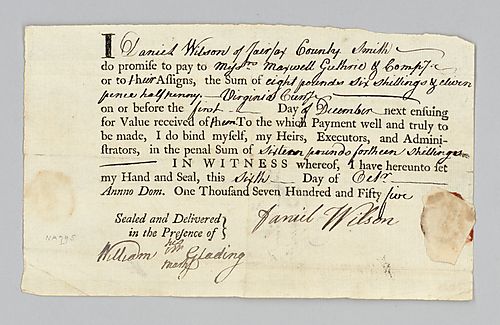 I Daniel Wilson of Fairfax County Smith
do promise to pay to Messrs Maxwell Guthrie & Comp.
or to their Assigns, the Sum of eight pounds Six Shillings & eleven
pence half penny Virginia Curr.
on or before the first Day of December next ensuing
for Value received of them To the which Payment well and truly to
be made, I do bind myself, my Heirs, Executors, and Admini-
strators, in the penal Sum of Sixteen pounds forteen Shillings
IN WITNESS whereof, I have hereunto set
my Hand and Seal, this Sixth Day of Octr.
Annno Dom. One Thousand Seven Hundred and Fifty five
Sealed and Delivered
in the Presence of
Daniel Wilson
William his mark Glading